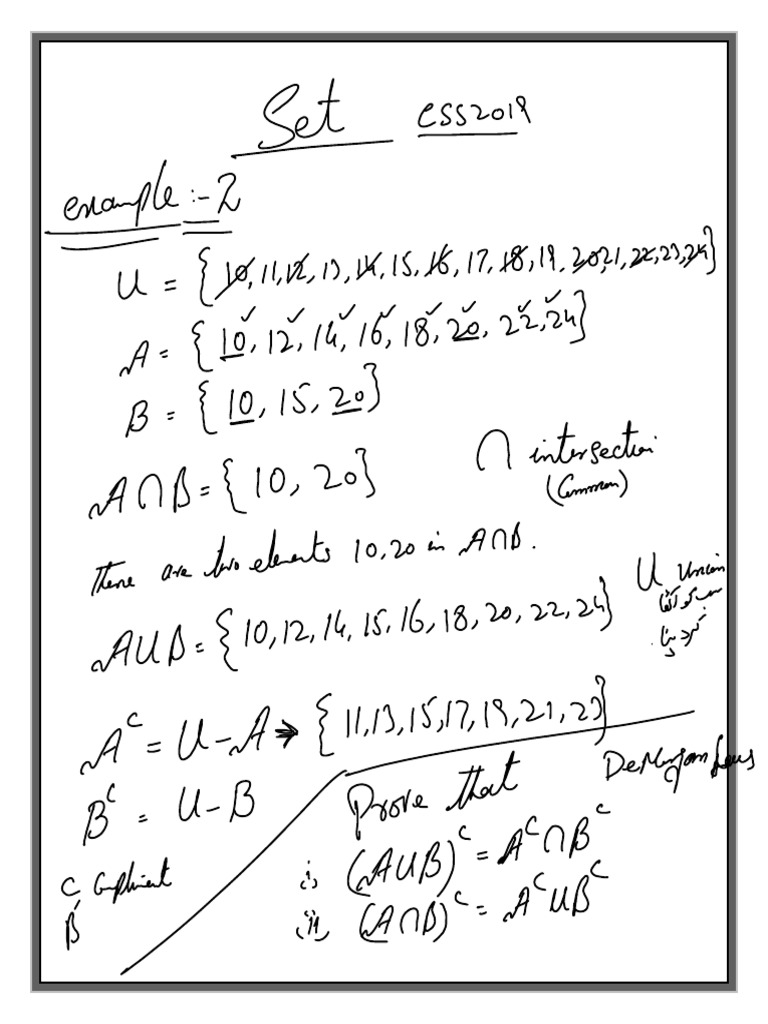 Set CSS2019
example :- 2
U = {10, 11, 12, 13, 14, 15, 16, 17, 18, 19, 20, 21, 22, 23, 24}
A = {10, 12, 14, 16, 18, 20, 22, 24}
B = {10, 15, 20}
A∩B = {10, 20}
∩ intersection
(Common)
There are two elements 10, 20 in A∩B.
U Union
سب کو اکٹھا
کر دینا
AUB = {10, 12, 14, 15, 16, 18, 20, 22, 24}
Aᶜ = U - A → {11, 13, 15, 17, 19, 21, 23}
Bᶜ = U - B
C Compliment
B'
DeMorgan Laws
Prove that
i) (AUB)ᶜ = Aᶜ∩Bᶜ
ii) (A∩B)ᶜ = AᶜUBᶜ